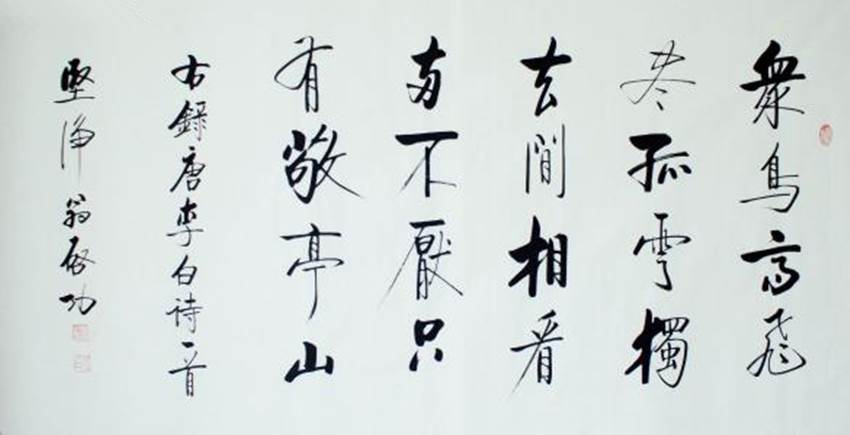 衆鳥高飛
盡孤雲獨
去閒相看
兩不厭只
有敬亭山
右錄唐李白詩一首
堅淨翁啓功